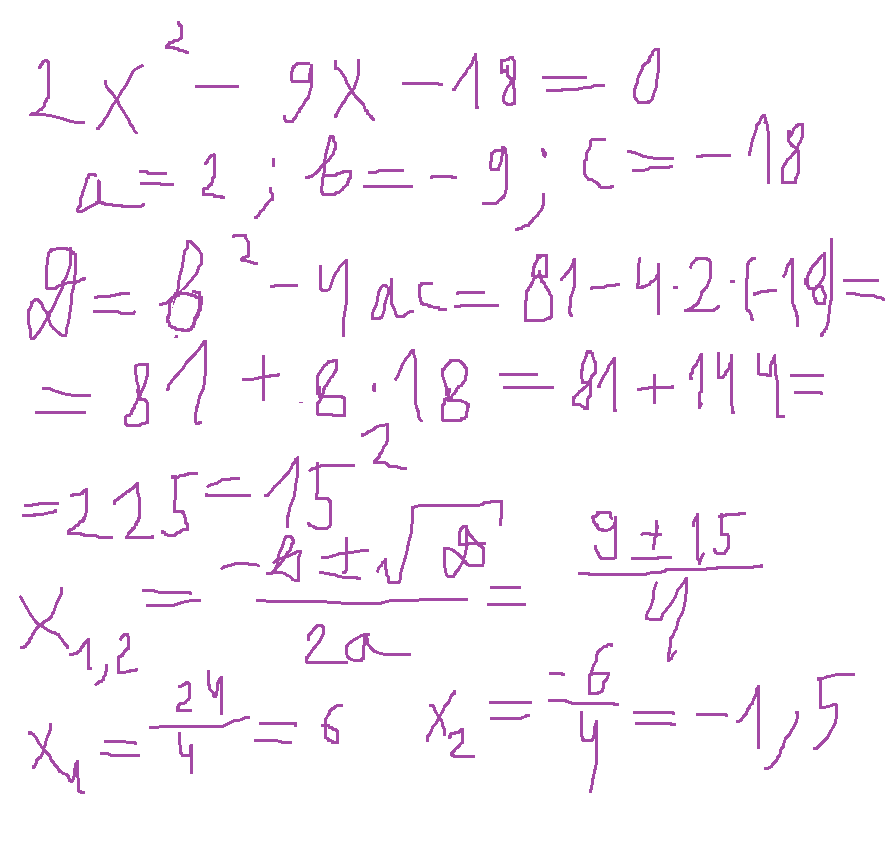 2x² - 9x - 18 = 0
a = 2; b = -9; c = -18
D = b² - 4ac = 81 - 4·2·(-18) =
= 81 + 8·18 = 81 + 144 =
= 225 = 15²
x₁,₂ = (-b ± √D)/(2a) = (9 ± 15)/4
x₁ = 24/4 = 6 x₂ = -6/4 = -1,5